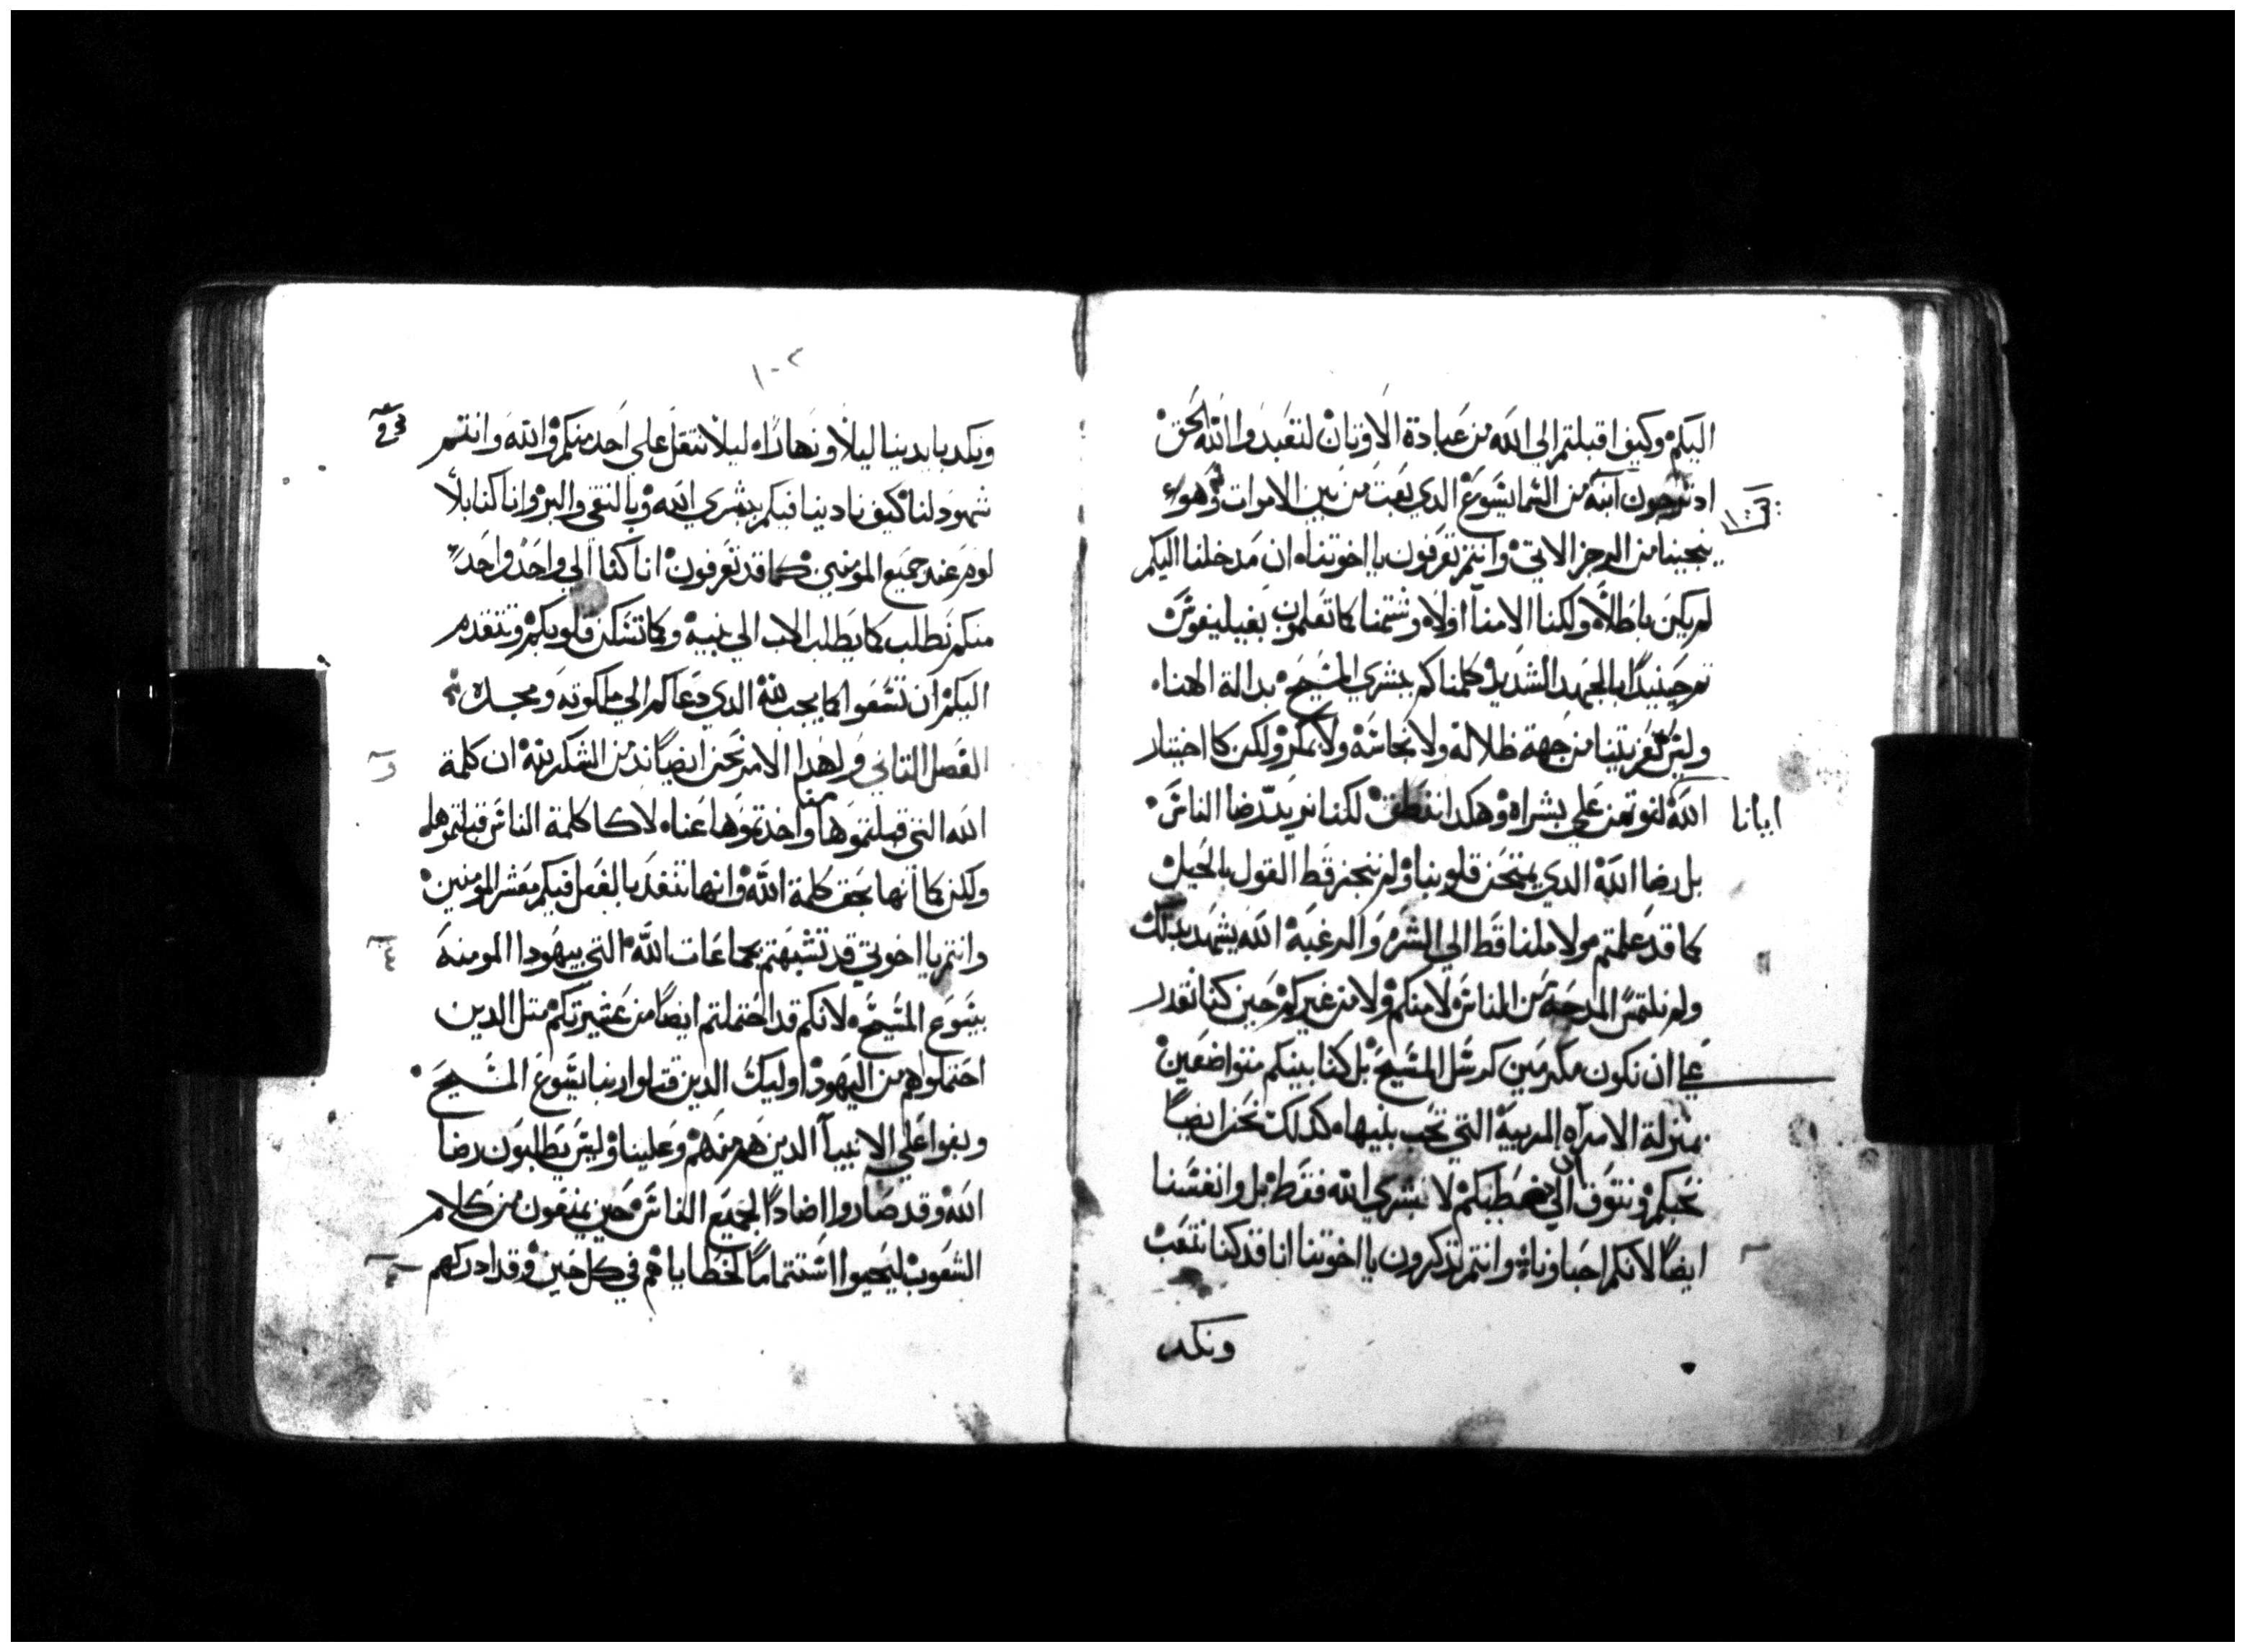 اليكم وكيف اقبلتم الي الله من عبادة الاوتان لتعبدوا الله الحق
اد ترجون ابنه من السما يشوع الدي بعت من بين الاموات وهو
ينجينا من الرجز الاتي وانتم تعرفون يا اخوتنا ان مدخلنا اليكم
لم يكن باطلا ولكنا الامنا اولا وشتمنا كما تعلمون بفيليفوس
تم حينيدا بالجهد الشديد كلمناكم ببشري المسيح بدالة الهنا
وليس تعزيتنا من جهة ظلاله ولا نجاسة ولا بمكر ولكن كما اختبار
ايانا
الله لنوتمن علي بشراه وهكدا ننطق لكننا نريد رضا الناس
بل رضا الله الدي يمتحن قلوبنا ولم نتجنز قط القول بالحيل
كما قد علمتم ولا ملنا قط الي الشره والرغبة الله يشهد بدلك
ولم نلتمس المدحة من الناس لا منكم ولا من غيركم حين كنا نقدر
علي ان نكون مكرمين كرسل المسيح بل كنا بينكم متواضعين
بمنزلة الامراه المربية التي تحب بنيها كدلك نحن ايضا
نحبكم ونتوق الي ان نعطيكم لا بشري الله فقط بل وانفسنا
ايضا لانكم احباونا وانتم تدكرون يا اخوتنا انا قد كنا نتعب
ونكد
١٠٢
ونكد بايدينا ليلا ونهارا ليلا نتقل علي احد منكم والله وانتم
شهود لنا كيف نادينا فيكم ببشري الله وبالنقي والبر وانا كنا بلا
لوم عند جميع المومنين كما قد تعرفون انا كنا الي واحد واحد
منكم نطلب كما يطلب الاب الي بنيه وكما تسكن قلوبكم ونتقدم
اليكم ان تسعوا كما يجب لله الدي دعاكم الي ملكوته ومجده
الفصل التاني ولهدا الامر نحن ايضا ندمن الشكر لله ان كلمة
الله التي قبلتموها منا واخدتموها عنا لا كما كلمة الناس قبلتموها
ولكن كما انها بحق كلمة الله وانها تنفد بالفعل فيكم معشر المومنين
وانتم يا اخوتي قد تشبهتم بجماعات الله التي بيهودا المومنة
بيسوع المسيح لانكم قد احتملتم ايضا من عشيرتكم متل الدين
احتملوا هم من اليهود اوليك الدين قتلوا ربنا يشوع المسيح
وبغوا علي الانبيا الدين هم منهم وعلينا وليس يطلبون رضا
الله وقد صاروا اضادا لجميع الناس حين يمنعون من كلام
الشعوب ليحيوا استتماما لخطاياهم في كل حين وقد ادركهم